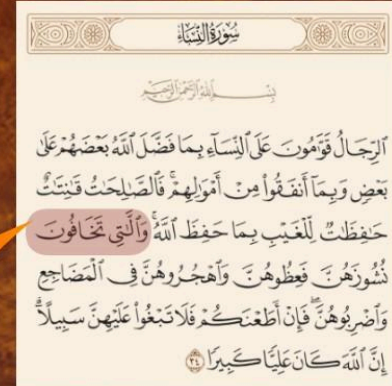 سُورَةُ النِّسَاءِ
بِسْمِ اللَّهِ الرَّحْمَٰنِ الرَّحِيمِ
ٱلرِّجَالُ قَوَّٰمُونَ عَلَى ٱلنِّسَآءِ بِمَا فَضَّلَ ٱللَّهُ بَعْضَهُمْ عَلَىٰ
بَعْضٍ وَبِمَآ أَنفَقُوا۟ مِنْ أَمْوَٰلِهِمْ ۚ فَٱلصَّٰلِحَٰتُ قَٰنِتَٰتٌ
حَٰفِظَٰتٌ لِّلْغَيْبِ بِمَا حَفِظَ ٱللَّهُ ۚ وَٱلَّٰتِى تَخَافُونَ
نُشُوزَهُنَّ فَعِظُوهُنَّ وَٱهْجُرُوهُنَّ فِى ٱلْمَضَاجِعِ
وَٱضْرِبُوهُنَّ ۖ فَإِنْ أَطَعْنَكُمْ فَلَا تَبْغُوا۟ عَلَيْهِنَّ سَبِيلًا ۗ
إِنَّ ٱللَّهَ كَانَ عَلِيًّا كَبِيرًا ٣٤